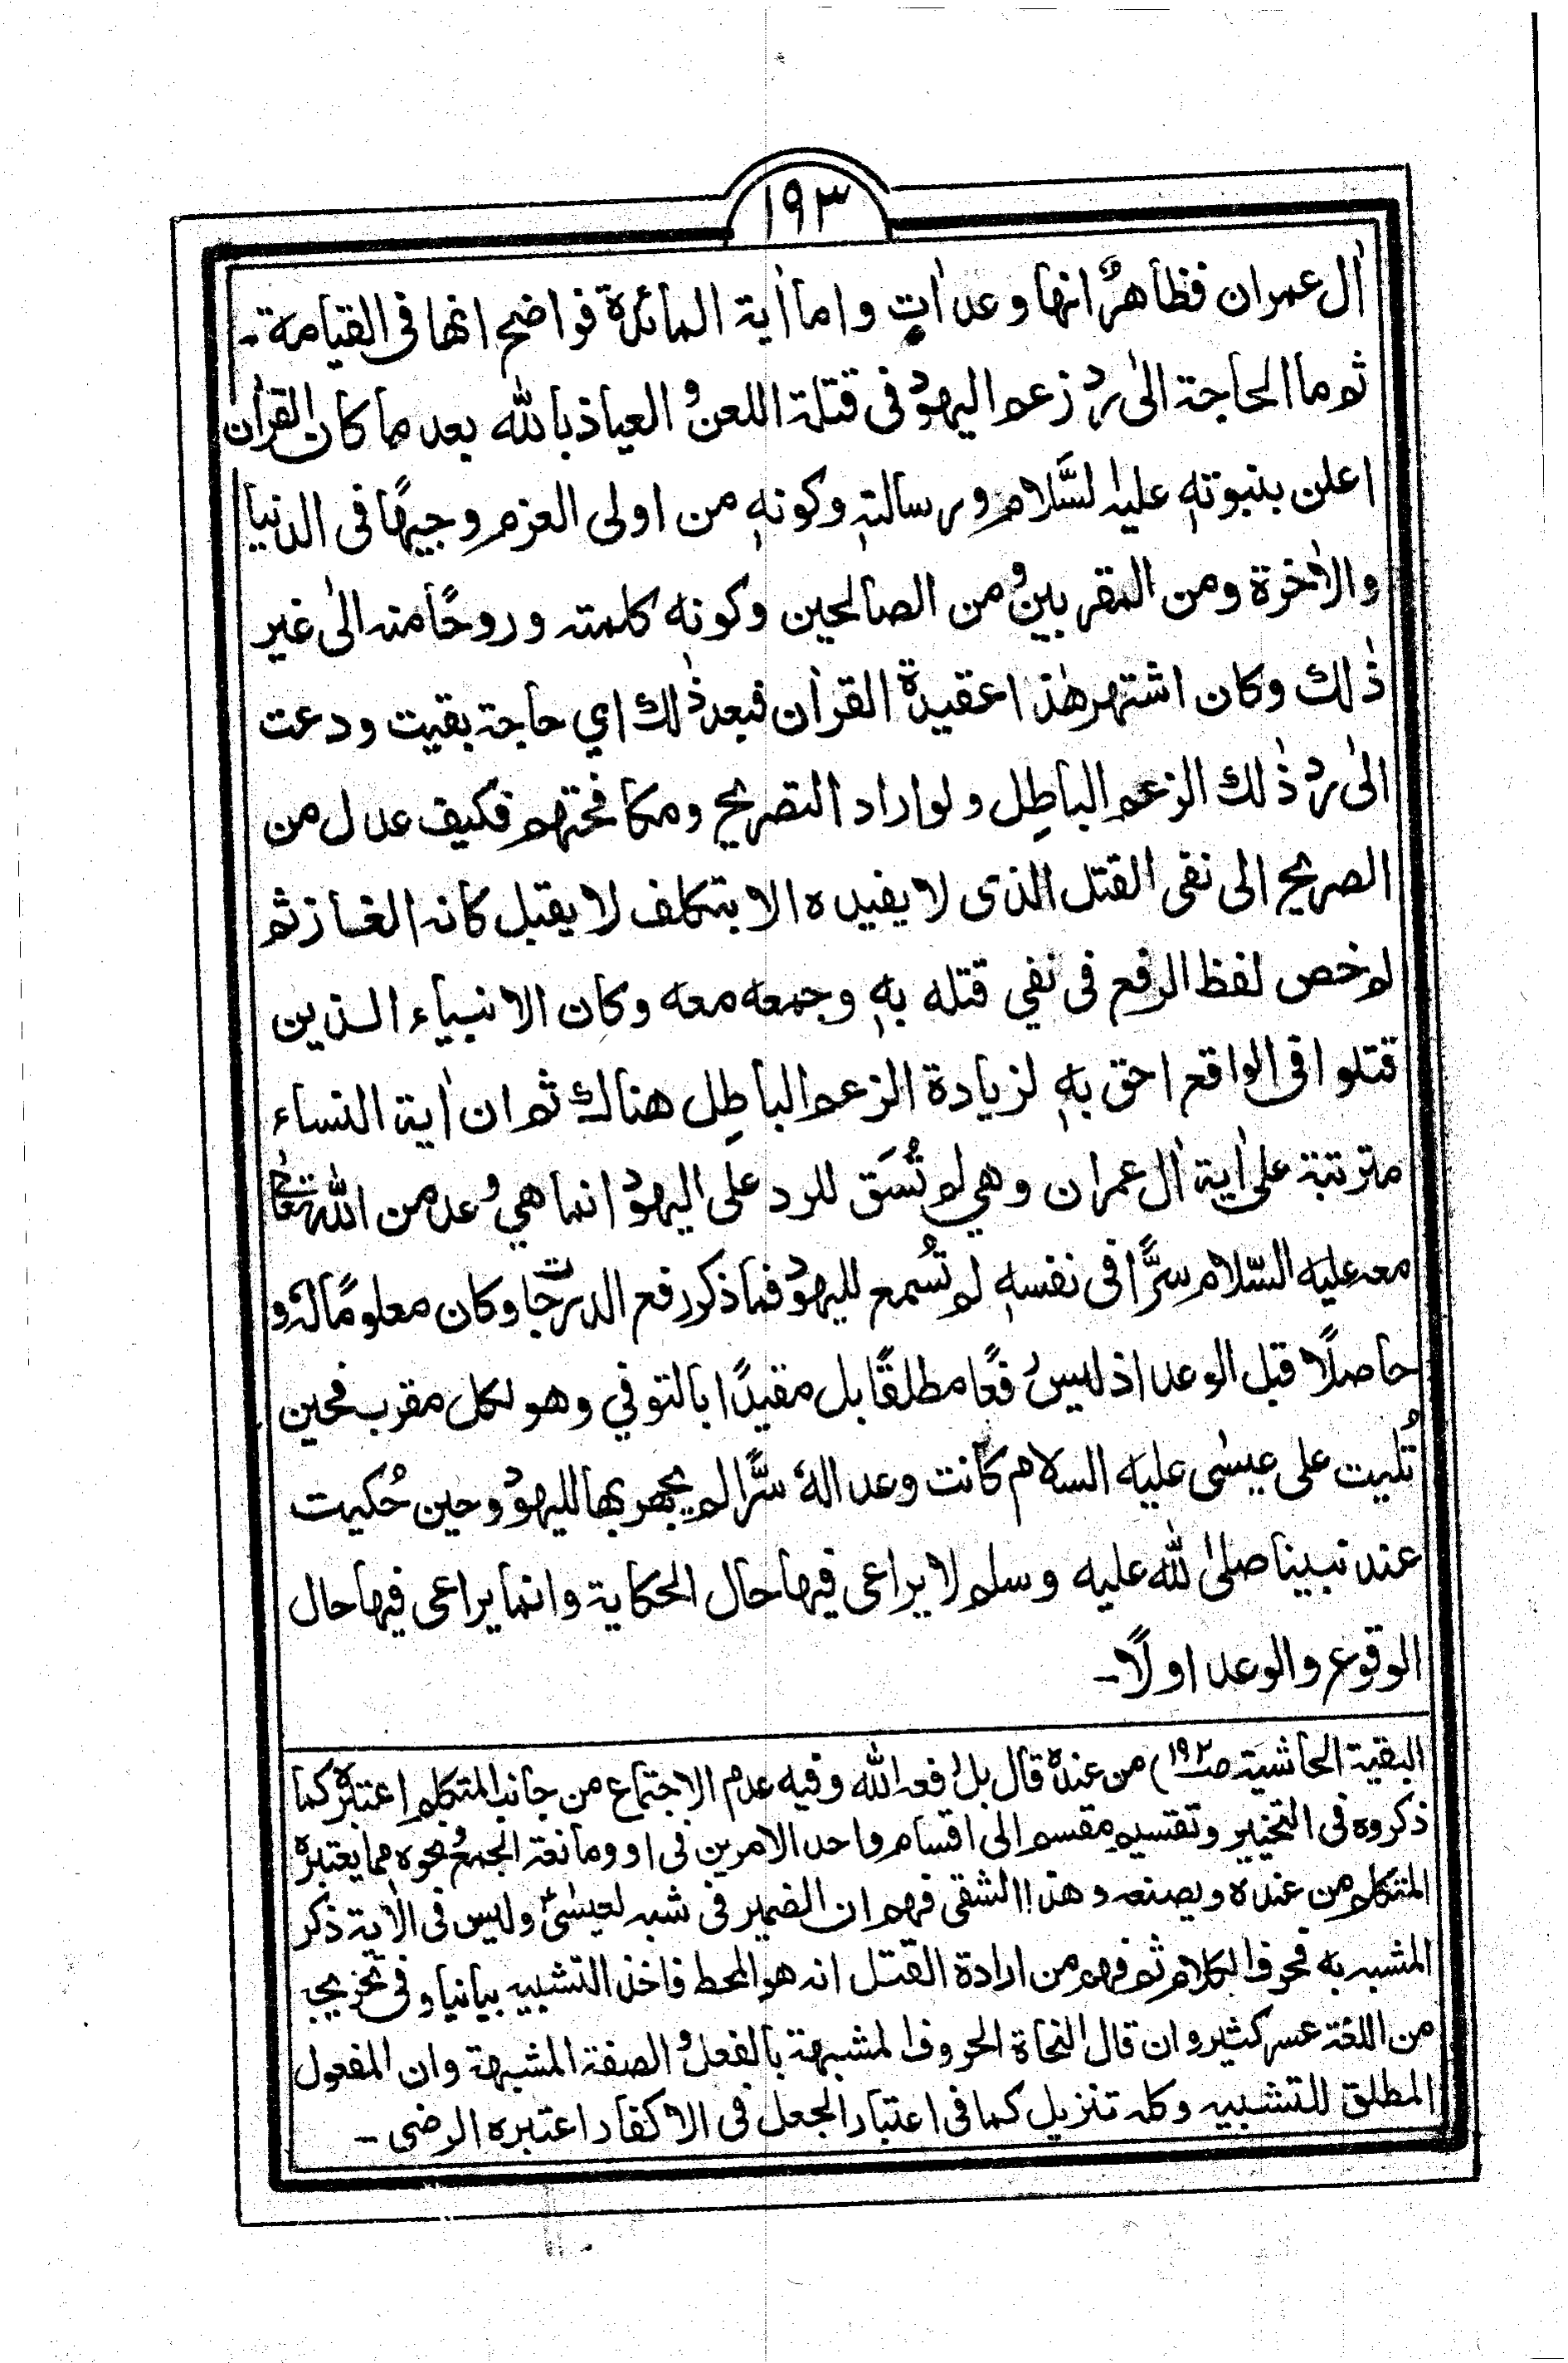 ١٩٣
اٰل عمران فظاهرٌ انها وعداتٍ واما اٰية المائدة فواضح انها فى القيامة۔
ثم ما الحاجة الىٰ رد زعم اليهود فى قتلة اللعن والعياذ بالله بعد ما كان القراٰن
اعلن بنبوتهٖ عليه السَّلام ورسالتهٖ وكونهٖ من اولى العزم وجيهًا فى الدنيا
والاٰخرة ومن المقربين ومن الصالحين وكونه كلمته وروحًا منه الىٰ غير
ذٰلك وكان اشتهر هٰذا عقيدة القراٰن فبعد ذٰلك اي حاجة بقيت ودعت
الىٰ رد ذٰلك الزعم الباطِل ولو اراد التصريح ومكافحتهم فكيف عدل من
الصريح الى نفى القتل الذى لا يفيده الا بتكلف لا يقبل كانه الغاز ثم
لم خص لفظ الرفع فى نفي قتله بهٖ وجمعه معه وكان الانبياء الذين
قتلوا فى الواقع احق بهٖ لزيادة الزعم الباطِل هناك ثم ان اٰية النساء
مترتبة علىٰ اٰية اٰل عمران وهي لم تُسَق للرد على اليهود انما هي وعد من الله تعالىٰ
معه عليه السّلام سِرًّا فى نفسهٖ لم تُسمع لليهود فما ذكر رفع الدرجات وكان معلومًا لهٗ و
حاصلًا قبل الوعد اذ ليس رفعًا مطلقًا بل مقيدًا بالتوفي وهو لكل مقرب فحين
تُليت على عيسٰى عليه السلام كانت وعدا لهٗ سرًّا لم يجهر بها لليهود وحين حُكيت
عند نبينا صلى الله عليه وسلم لا يراعى فيها حال الحكاية وانما يراعى فيها حال
الوقوع والوعد اولًا۔
البقية الحاشية صـ١٩٢) من عنده قال بل رفعه الله وفيه عدم الاجتماع من جانب المتكلم اعتبره كما
ذكروه فى التخيير وتقسيم مقسم الى اقسام واحد الامرين فى او ومانعة الجمع ونحوه مما يعتبره
المتكلم من عنده ويصنعه وهذا الشقى فهم ان الضمير فى شبه لعيسىٰؑ وليس فى الاٰية ذكر
المشبه به فحرف الكلام ثم فهم من ارادة القتل انه هو المحط فاخذ التشبيه بيانيا وفى تخريجه
من اللغة عسر كثير وان قال النحاة الحروف المشبهة بالفعل والصفة المشبهة وان المفعول
المطلق للتشبيه وكله تنزيل كما فى اعتبار الجعل فى الاكفار اعتبره الرضى۔